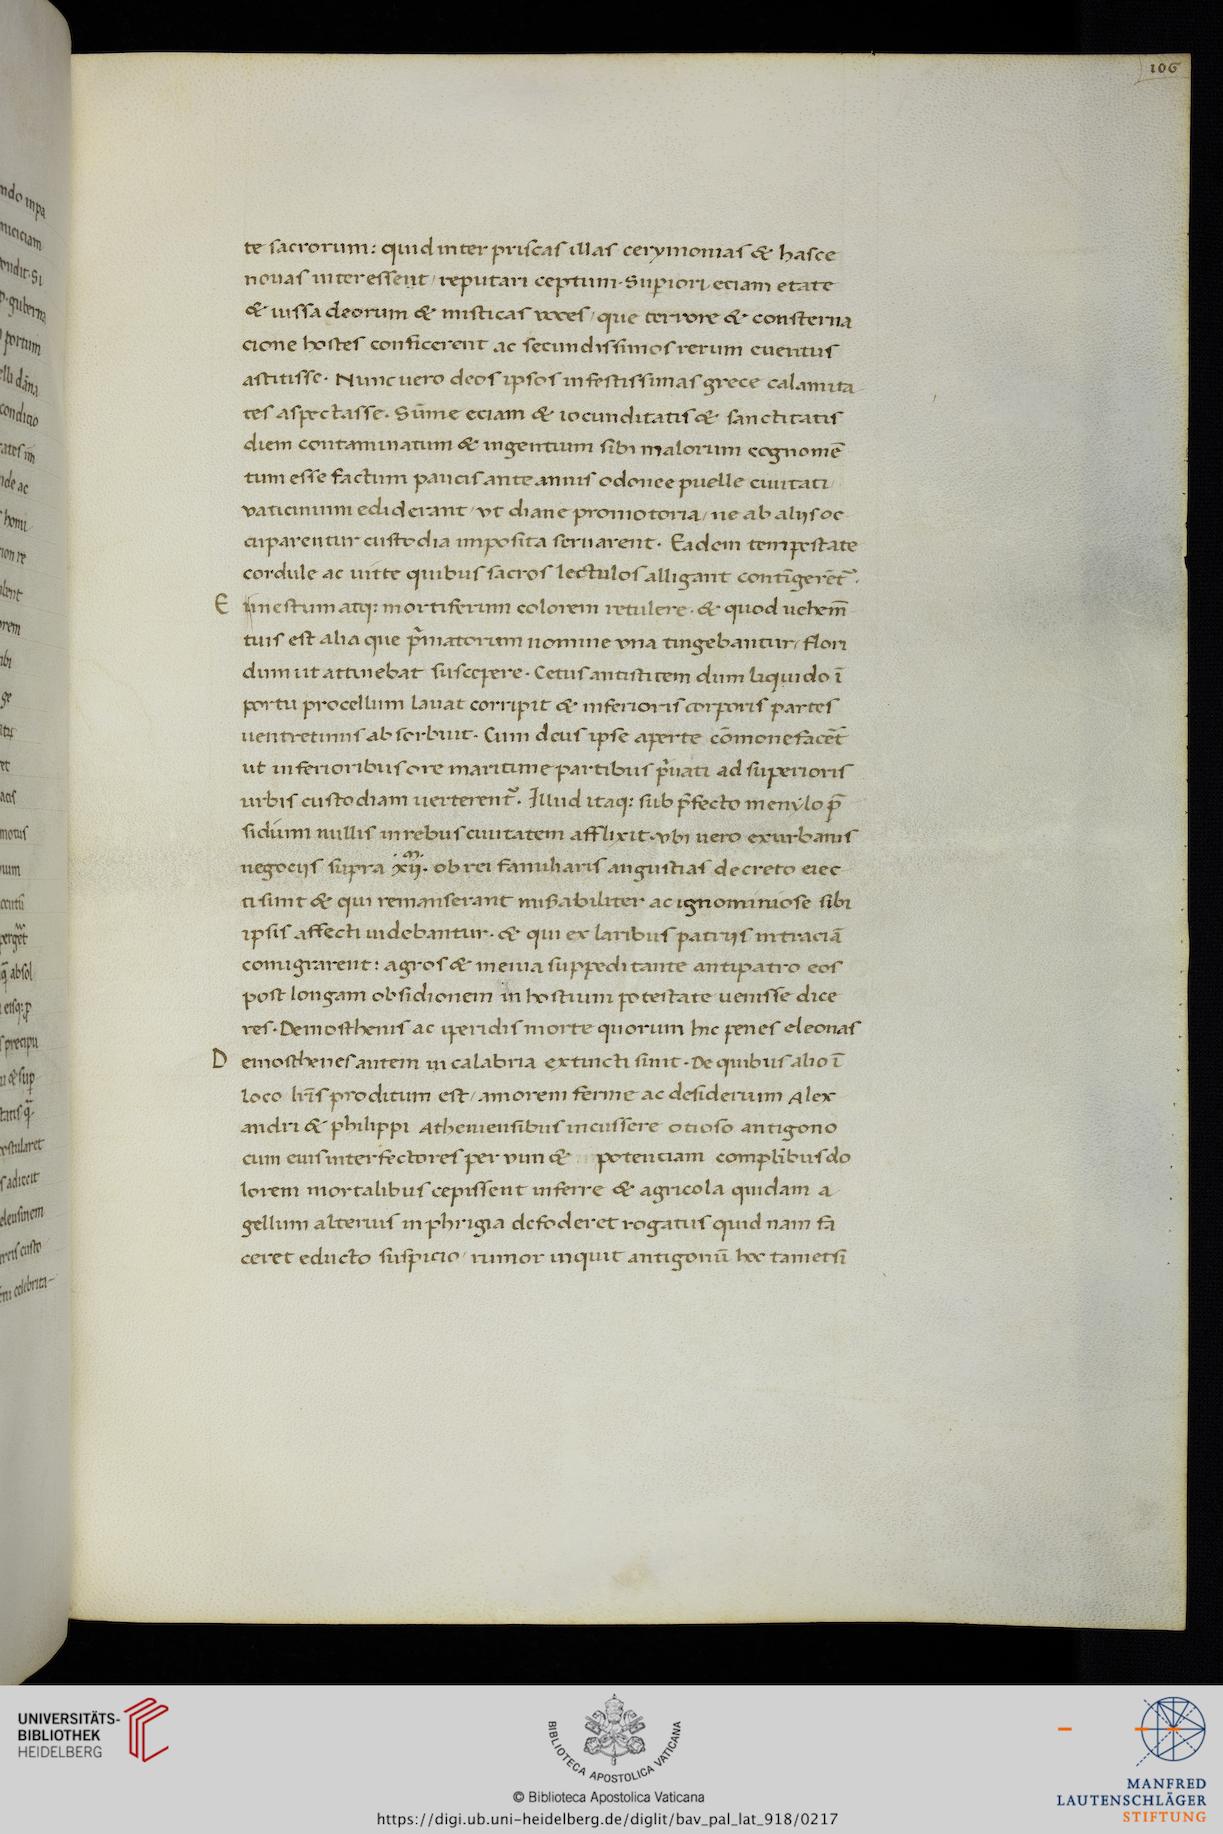 106
te sacrorum: quid inter priscas illas cerymonias & hasce
nouas interessent / reputari ceptum. Superiori eciam etate
& iussa deorum & misticas voces / que terrore & consterna
cione hostes conficerent ac secundissimos rerum euentus
astitisse. Nunc uero deos ipsos infestissimas grece calamita
tes aspectasse. Sūme eciam & iocunditatis & sanctitatis
diem contaminatum & ingentium sibi malorum cognomē
tum esse factum paucis ante annis odonee puelle ciuitati
vaticinium ediderant / vt diane promotoria / ne ab alijs oc
cuparentur custodia imposita seruarent. Eadem tempestate
cordule ac uitte quibus sacros lectulos alligant contīgerēt.
E unestum atq: mortiferum colorem retulere. & quod uehem̄
tius est alia que pr̄matorum nomine vna tingebantur / flori
dum ut attinebat suscepere. Cetus antistitem dum liquido ī
portu procellum lauat corripit & inferioris corporis partes
uentretinus absorbuit. Cum deus ipse aperte cōmonefacēt
ut inferioribus ore maritime partibus pr̄uati ad superioris
urbis custodiam uerterent. Illud itaq: sub p̄fecto menylo p̄
sidium nullis in rebus ciuitatem afflixit. vbi uero exurbanis
negocijs supra xij. ob rei familiaris angustias decreto eiec
ti sunt & qui remanserant misabiliter ac ignominiose sibi
ipsis affecti uidebantur. & qui ex laribus patrijs in traciā
comigrarent: agros & menia suppeditante antipatro eos
post longam obsidionem in hostium potestate uenisse dice
res. Demosthenis ac iperidis morte quorum hic penes eleonas
D emosthenes autem in calabria extincti sunt. De quibus alio ī
loco lr̄is proditum est / amorem ferme ac desiderium Alex
andri & philippi Atheniensibus incussere otioso antigono
cum eius interfectores per vim & potentiam complībus do
lorem mortalibus cepissent inferre & agricola quidam a
gellum alterius in phrigia defoderet rogatus quid nam fa
ceret educto suspicio / rumor inquit antigonū hoc tametsi
UNIVERSITÄTS-
BIBLIOTHEK
HEIDELBERG
BIBLIOTECA APOSTOLICA VATICANA
© Biblioteca Apostolica Vaticana
https://digi.ub.uni-heidelberg.de/diglit/bav_pal_lat_918/0217
MANFRED
LAUTENSCHLÄGER
STIFTUNG